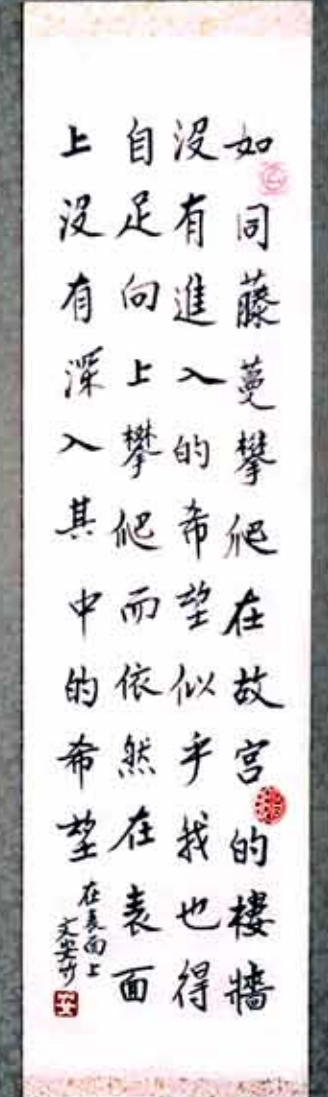 如同藤蔓攀爬在故宫的樓牆
没有進入的希望似乎我也得
自足向上攀爬而依然在表面
上没有深入其中的希望
在表面上
文安